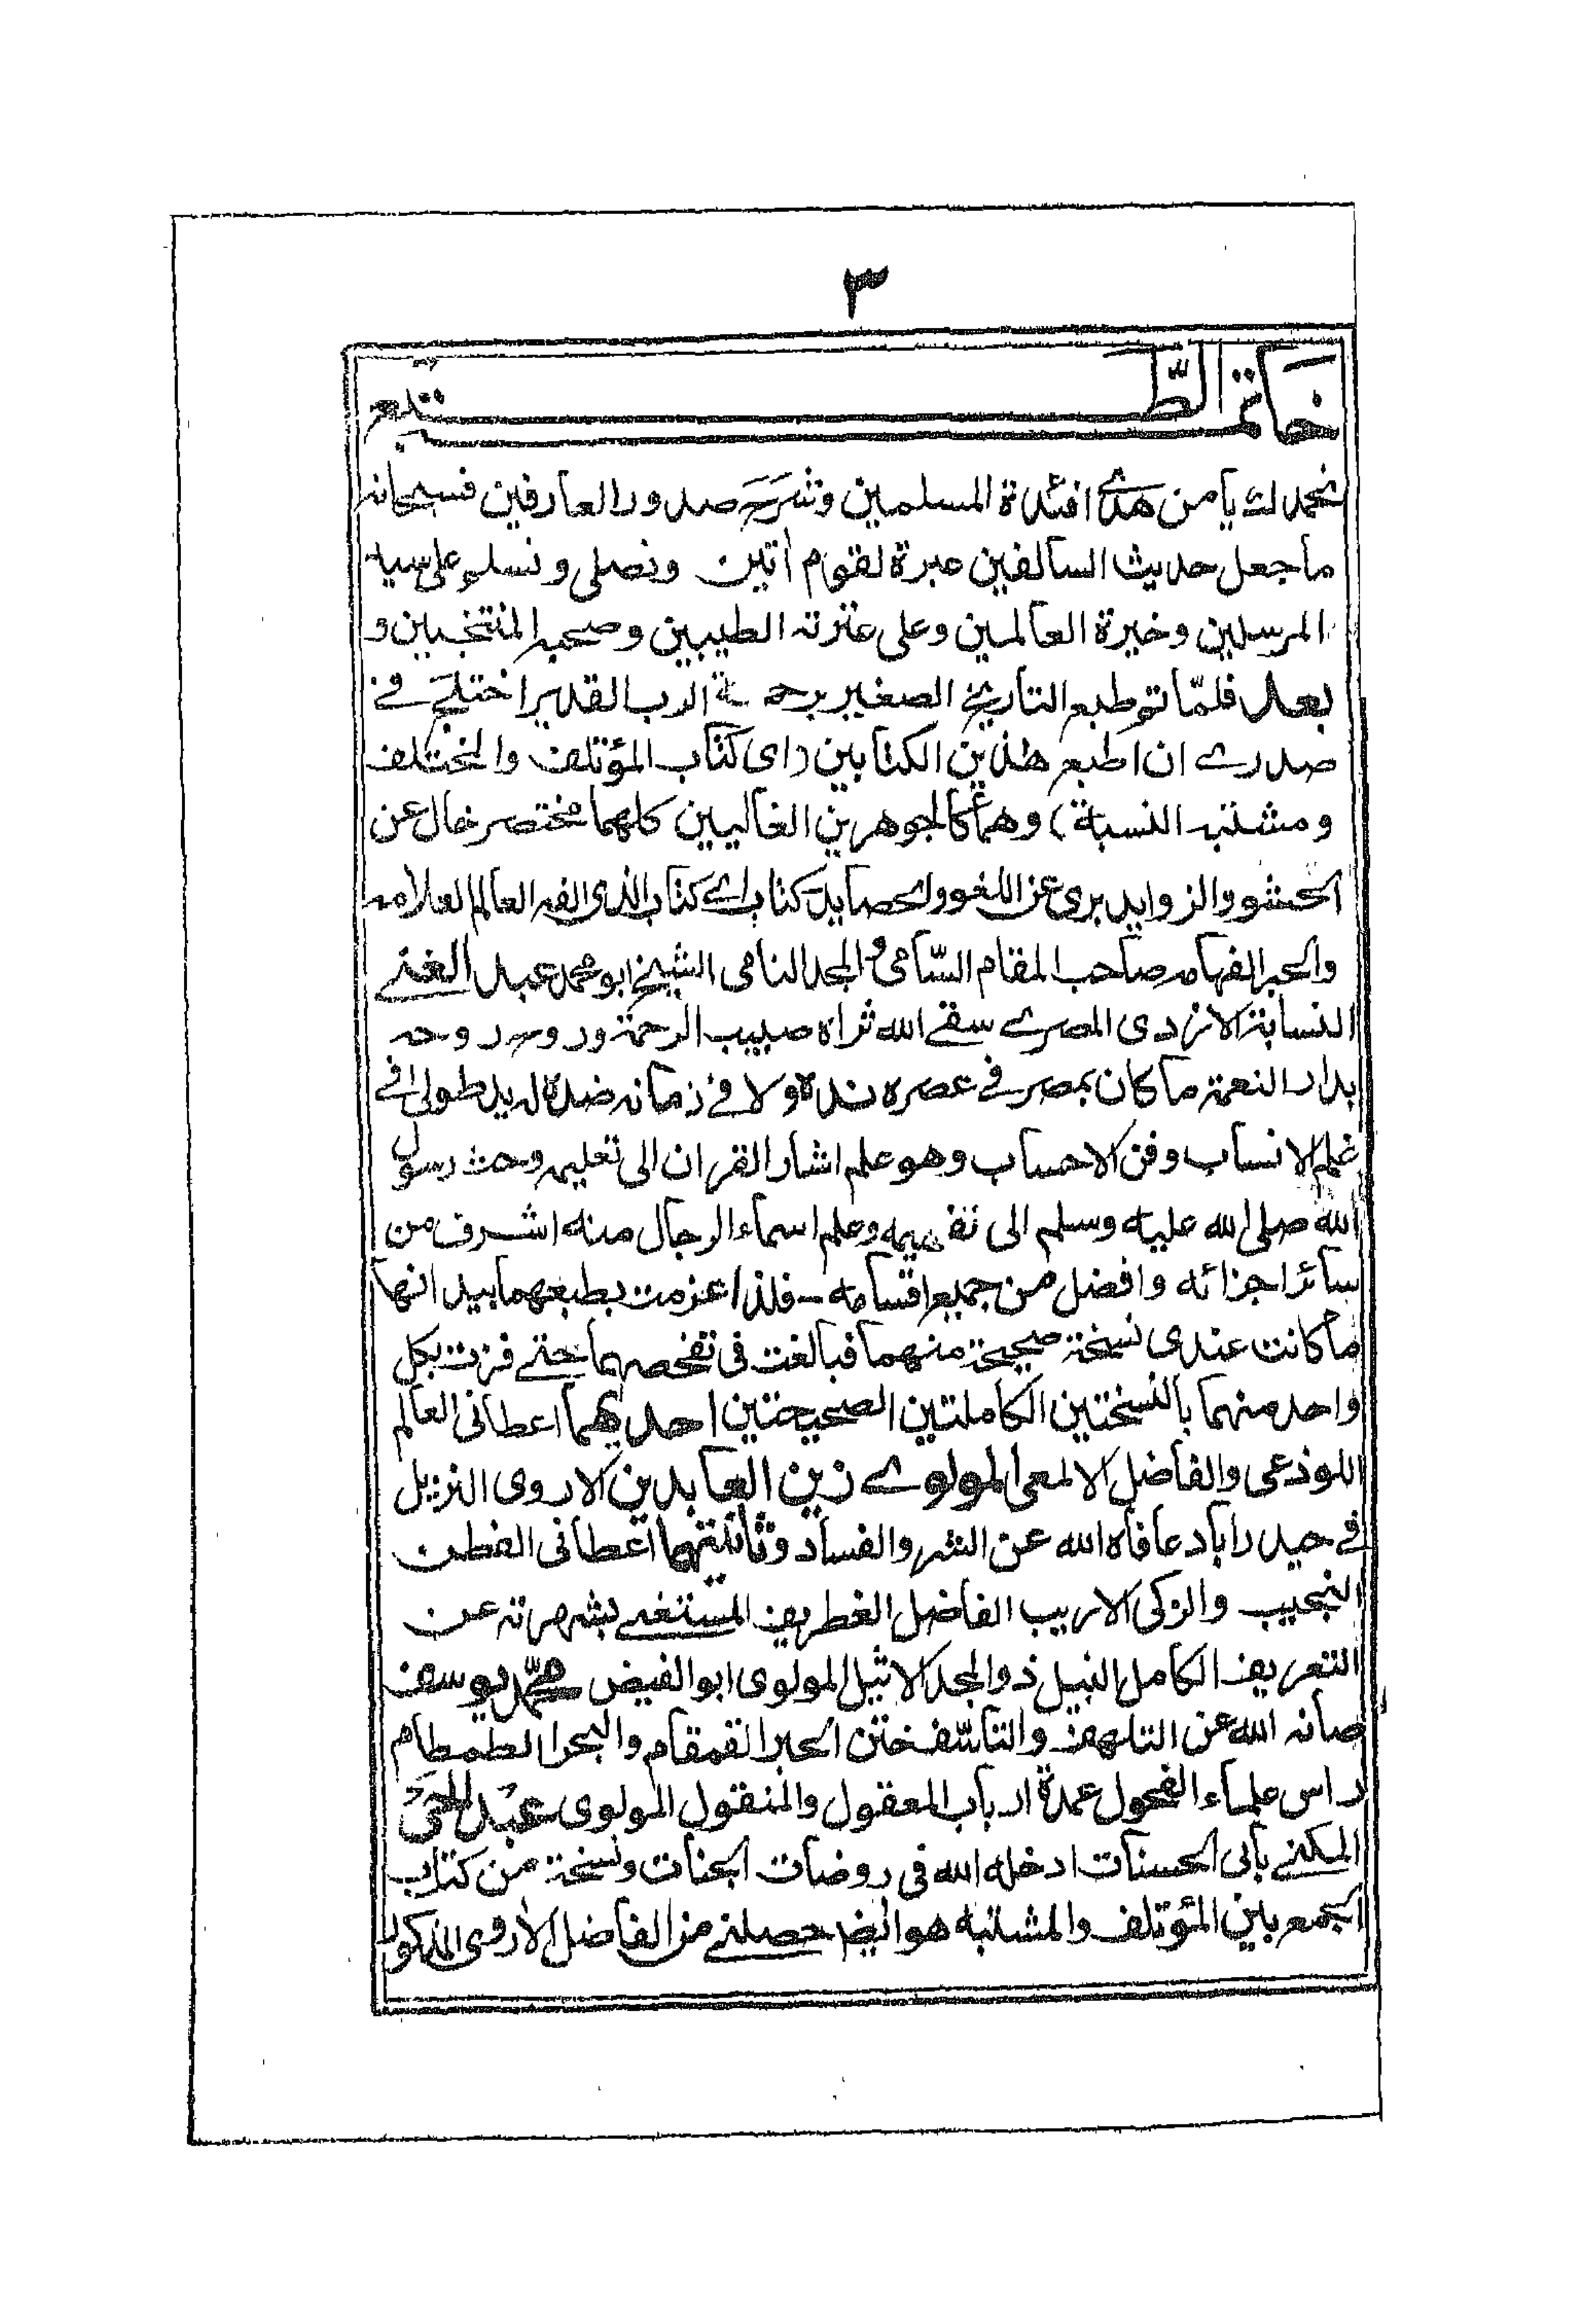 ٣
خاتمة الطبع
نحمدك يا من هدى افئدة المسلمين وشرح صدور العارفين فسبحانه
ما جعل حديث السالفين عبرة لقوم اتين ونصلي ونسلم على سيد
المرسلين وخيرة العالمين وعلى عترته الطيبين وصحبه المنتخبين و
بعد فلمّا تم طبع التاريخ الصغير برحمة الرب القدير اختلج في
صدرے ان اطبع هذين الكتابين (اى كتاب المؤتلف والمختلف
ومشتبه النسبة) وهما كالجوهرين الغاليين كلهما مختصر خال عن
الحشو والزوايد برى عن اللغو والحصايد كتاب اے كتاب الذى الفه العالم العلامه
والحبر الفهامه صاحب المقام السّامى والمجد النامى الشيخ ابو محمد عبد الغنے
النسابة الازدى المصرے سقے الله ثراه صبيب الرحمة وروح روحه
بدار النعمة ما كان بمصر فے عصره نده ولا فے زمانه ضده له يد طولى فے
علم الانساب وفن الاحساب وهو علم اشار القران الى تعليمه وحث رسول
الله صلى الله عليه وسلم الى تفهيمه وعلم اسماء الرجال منه اشرف من
سائر اجزائه وافضل من جميع اقسامه ـ فلذا عزمت بطبعهما بيد انها
ما كانت عندى نسخة صحيحة منهما فبالغت فى تفحصهما حتے فزت بكل
واحد منهما بالنسختين الكاملتين الصحيحتين احديهما اعطانى العالم
اللوذعى والفاضل الالمعى المولوے زين العابدين الاروى النزيل
فے حيدراباد عافاه الله عن الشر والفساد وثانيتهما اعطانى الفطن
النجيب والزكى الاريب الفاضل الغطريف المستغنے بشهرته عن
التعريف الكامل النبيل ذو المجد الاثيل المولوى ابو الفيض محمّد يوسف
صانه الله عن التلهف والتاسّف ختن الحبر القمقام والبحر الطمطام
راس علماء الفحول عمدة ارباب المعقول والمنقول المولوى عبد الحىّ
المكنے بأبى الحسنات ادخله الله فى روضات الجنات ونسخة من كتاب
الجمع بين المؤتلف والمشتبه هو ايضا حصلنے من الفاضل الاروى المذكور